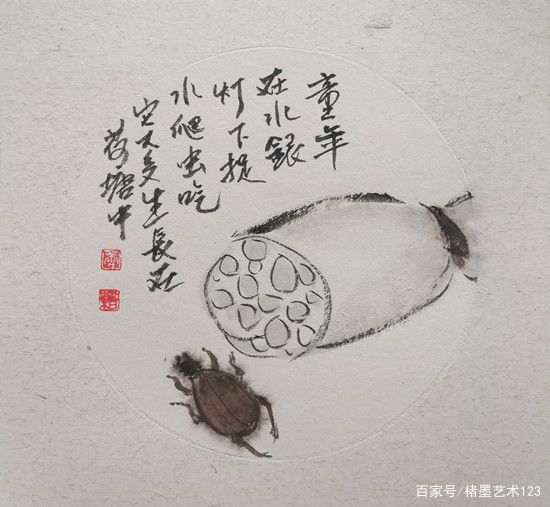 童年
在水銀
灯下捉
水爬虫吃
它大多生長在
荷塘中
百家号/楮墨艺术123